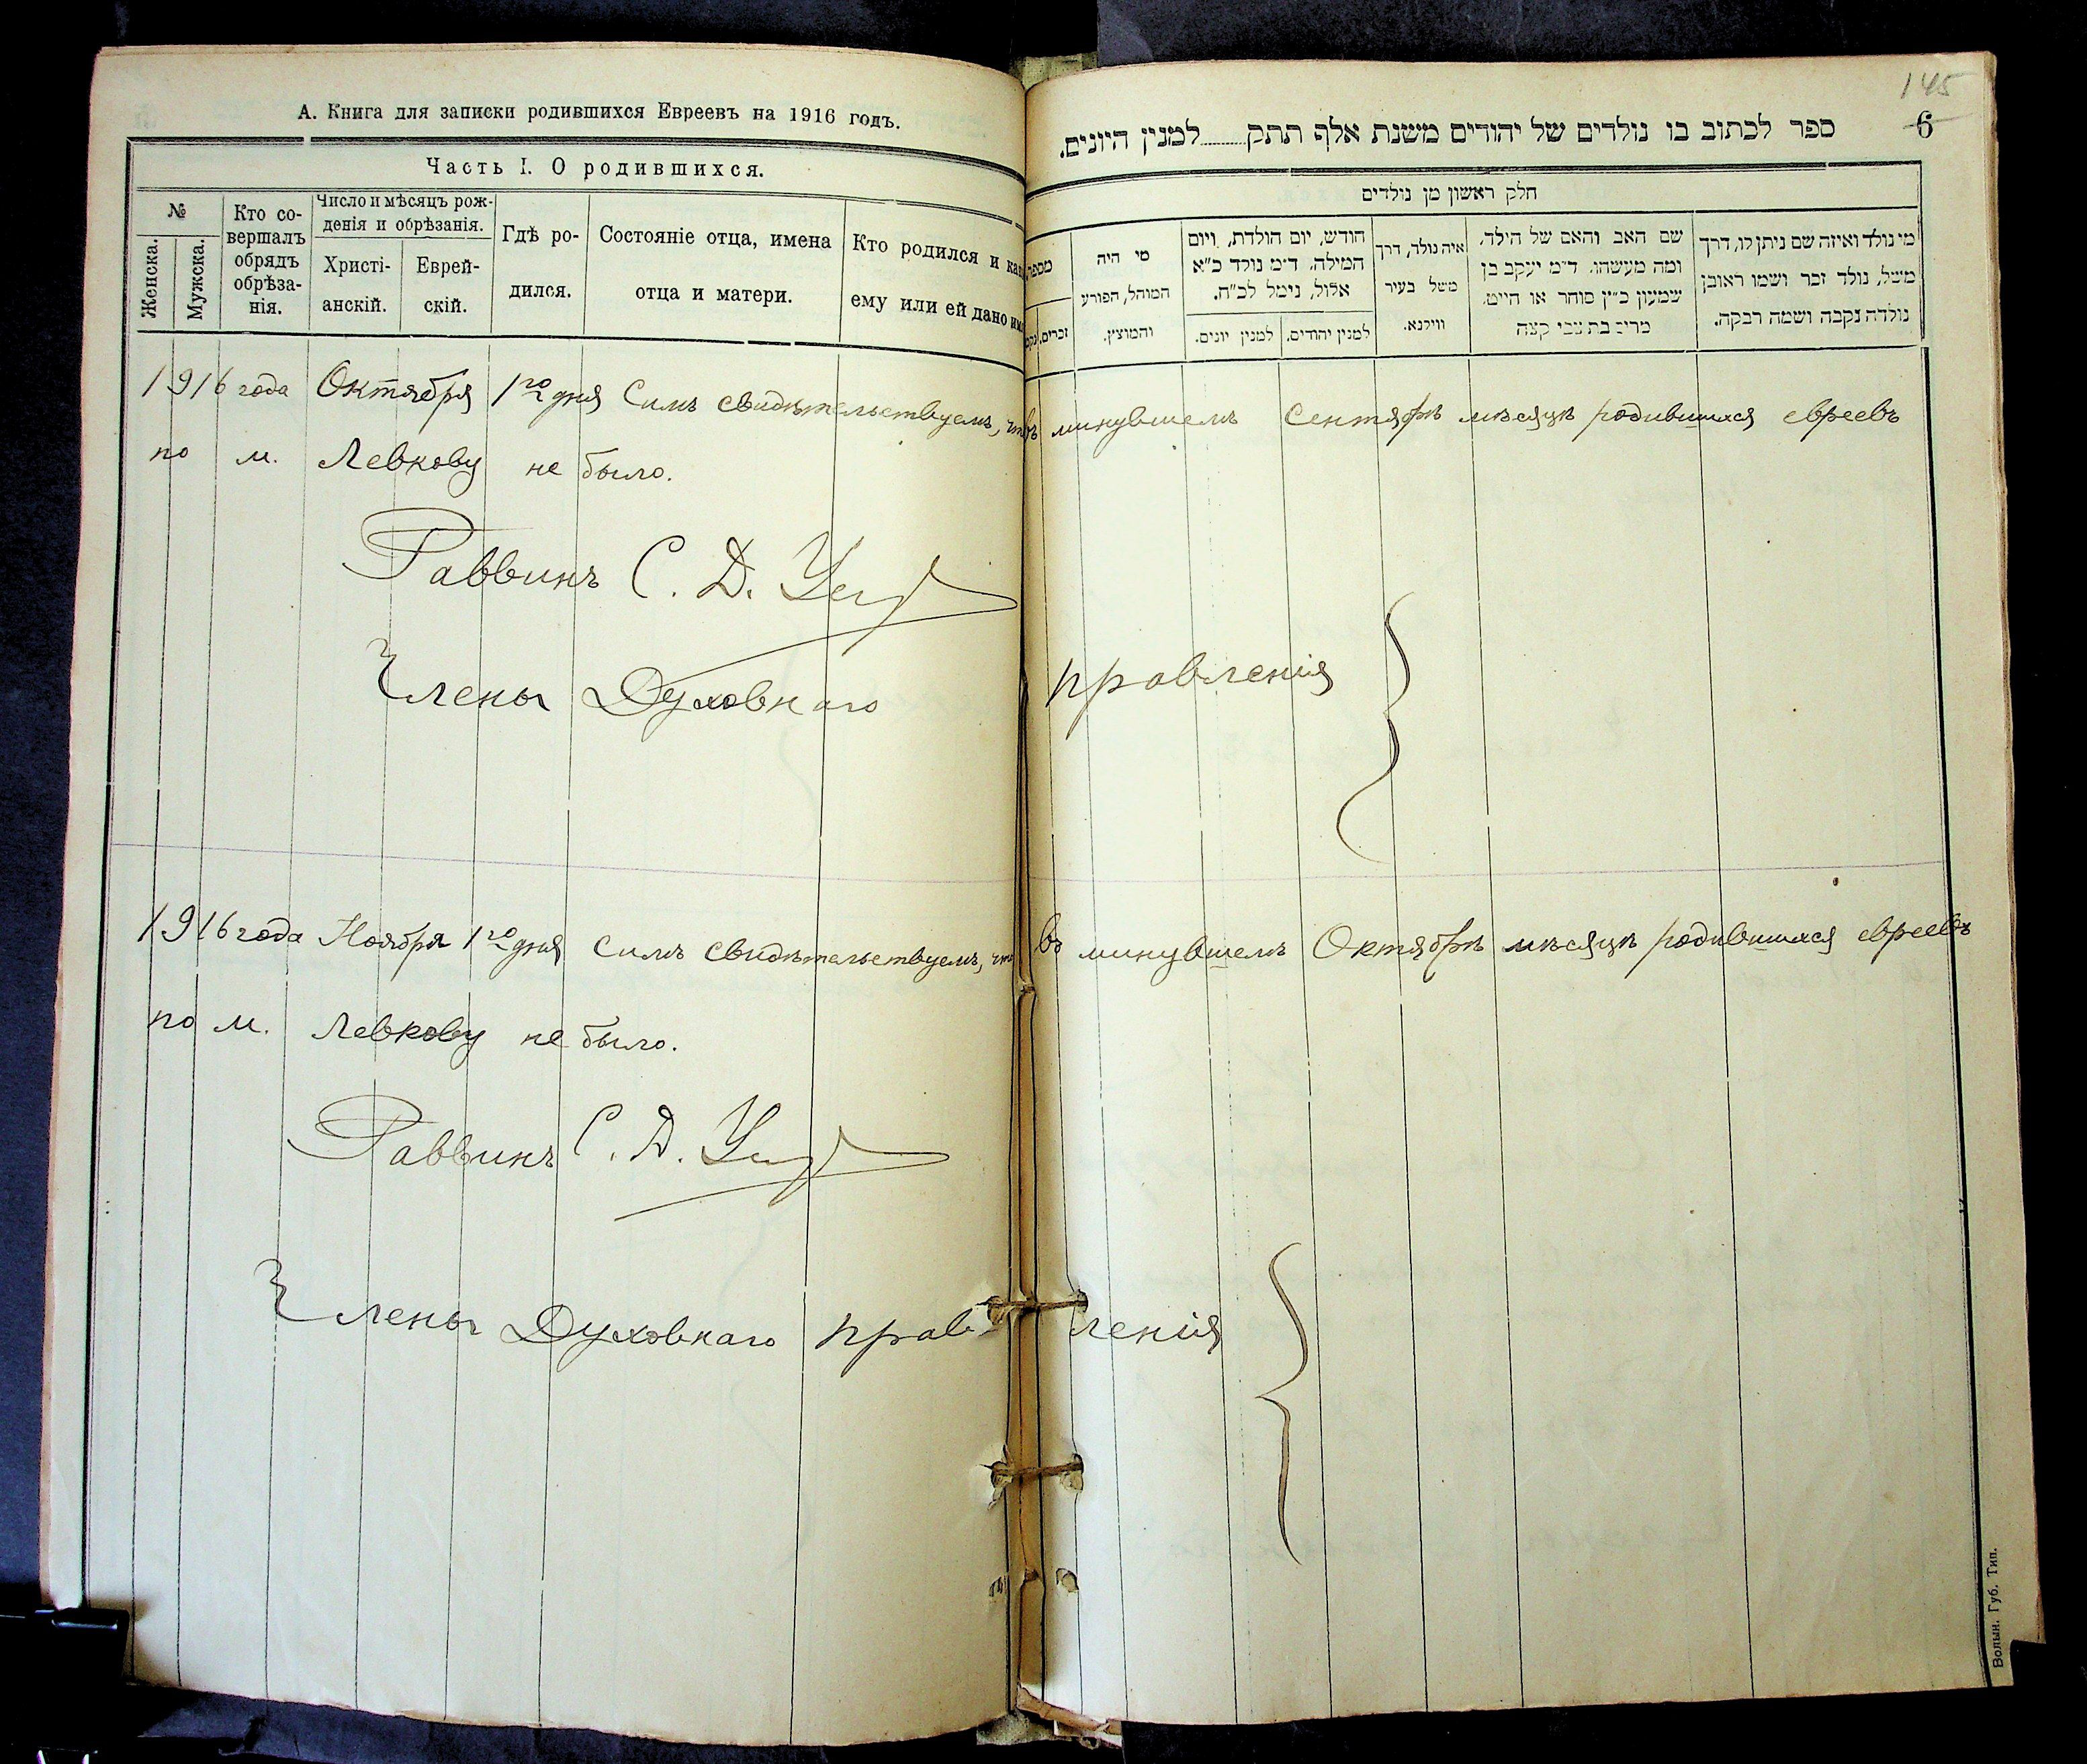 А. Книга для записки родившихся Евреевъ на 1916 годъ.
Часть I. О родившихся.
№
Женска.
Мужска.
Кто со-
вершалъ
обрядъ
обрѣза-
нія.
Число и мѣсяцъ рож-
денія и обрѣзанія.
Христі-
анскій.
Еврей-
скій.
Гдѣ ро-
дился.
Состояніе отца, имена
отца и матери.
Кто родился и как
ему или ей дано им
145
6
ספר לכתוב בו נולדים של יהודים משנת אלף תתק........למנין היונים.
חלק ראשון מן נולדים
מי נולד ואיזה שם ניתן לו, דרך
משל, נולד זכר ושמו ראובן
נולדה נקבה ושמה רבקה.
שם האב והאם של הילד,
ומה מעשהו. ד״מ יעקב בן
שמעון כ״ץ סוחר או חייט,
מרים בת צבי קצה
איה נולד, דרך
משל בעיר
ווילנא.
חודש, יום הולדת, ויום
המילה. ד״מ נולד כ״א
אלול, נימל לכ״ח.
למנין יהודים.
למנין יונים.
מי היה
המוהל, הפורע
והמוצץ.
מספר
זכרים.
1916 года Октября 1го дня Симъ свидѣтельствуемъ, что въ минувшемъ Сентябрѣ мѣсяцѣ родившихся евреевъ
по м. Левкову не было.
Раввинъ С. Д.
Члены Духовнаго правленія
1916 года Ноября 1го дня Симъ свидѣтельствуемъ, что въ минувшемъ Октябрѣ мѣсяцѣ родившихся евреевъ
по м. Левкову не было.
Раввинъ С. Д.
Члены Духовнаго правленія
Волын. Губ. Тип.